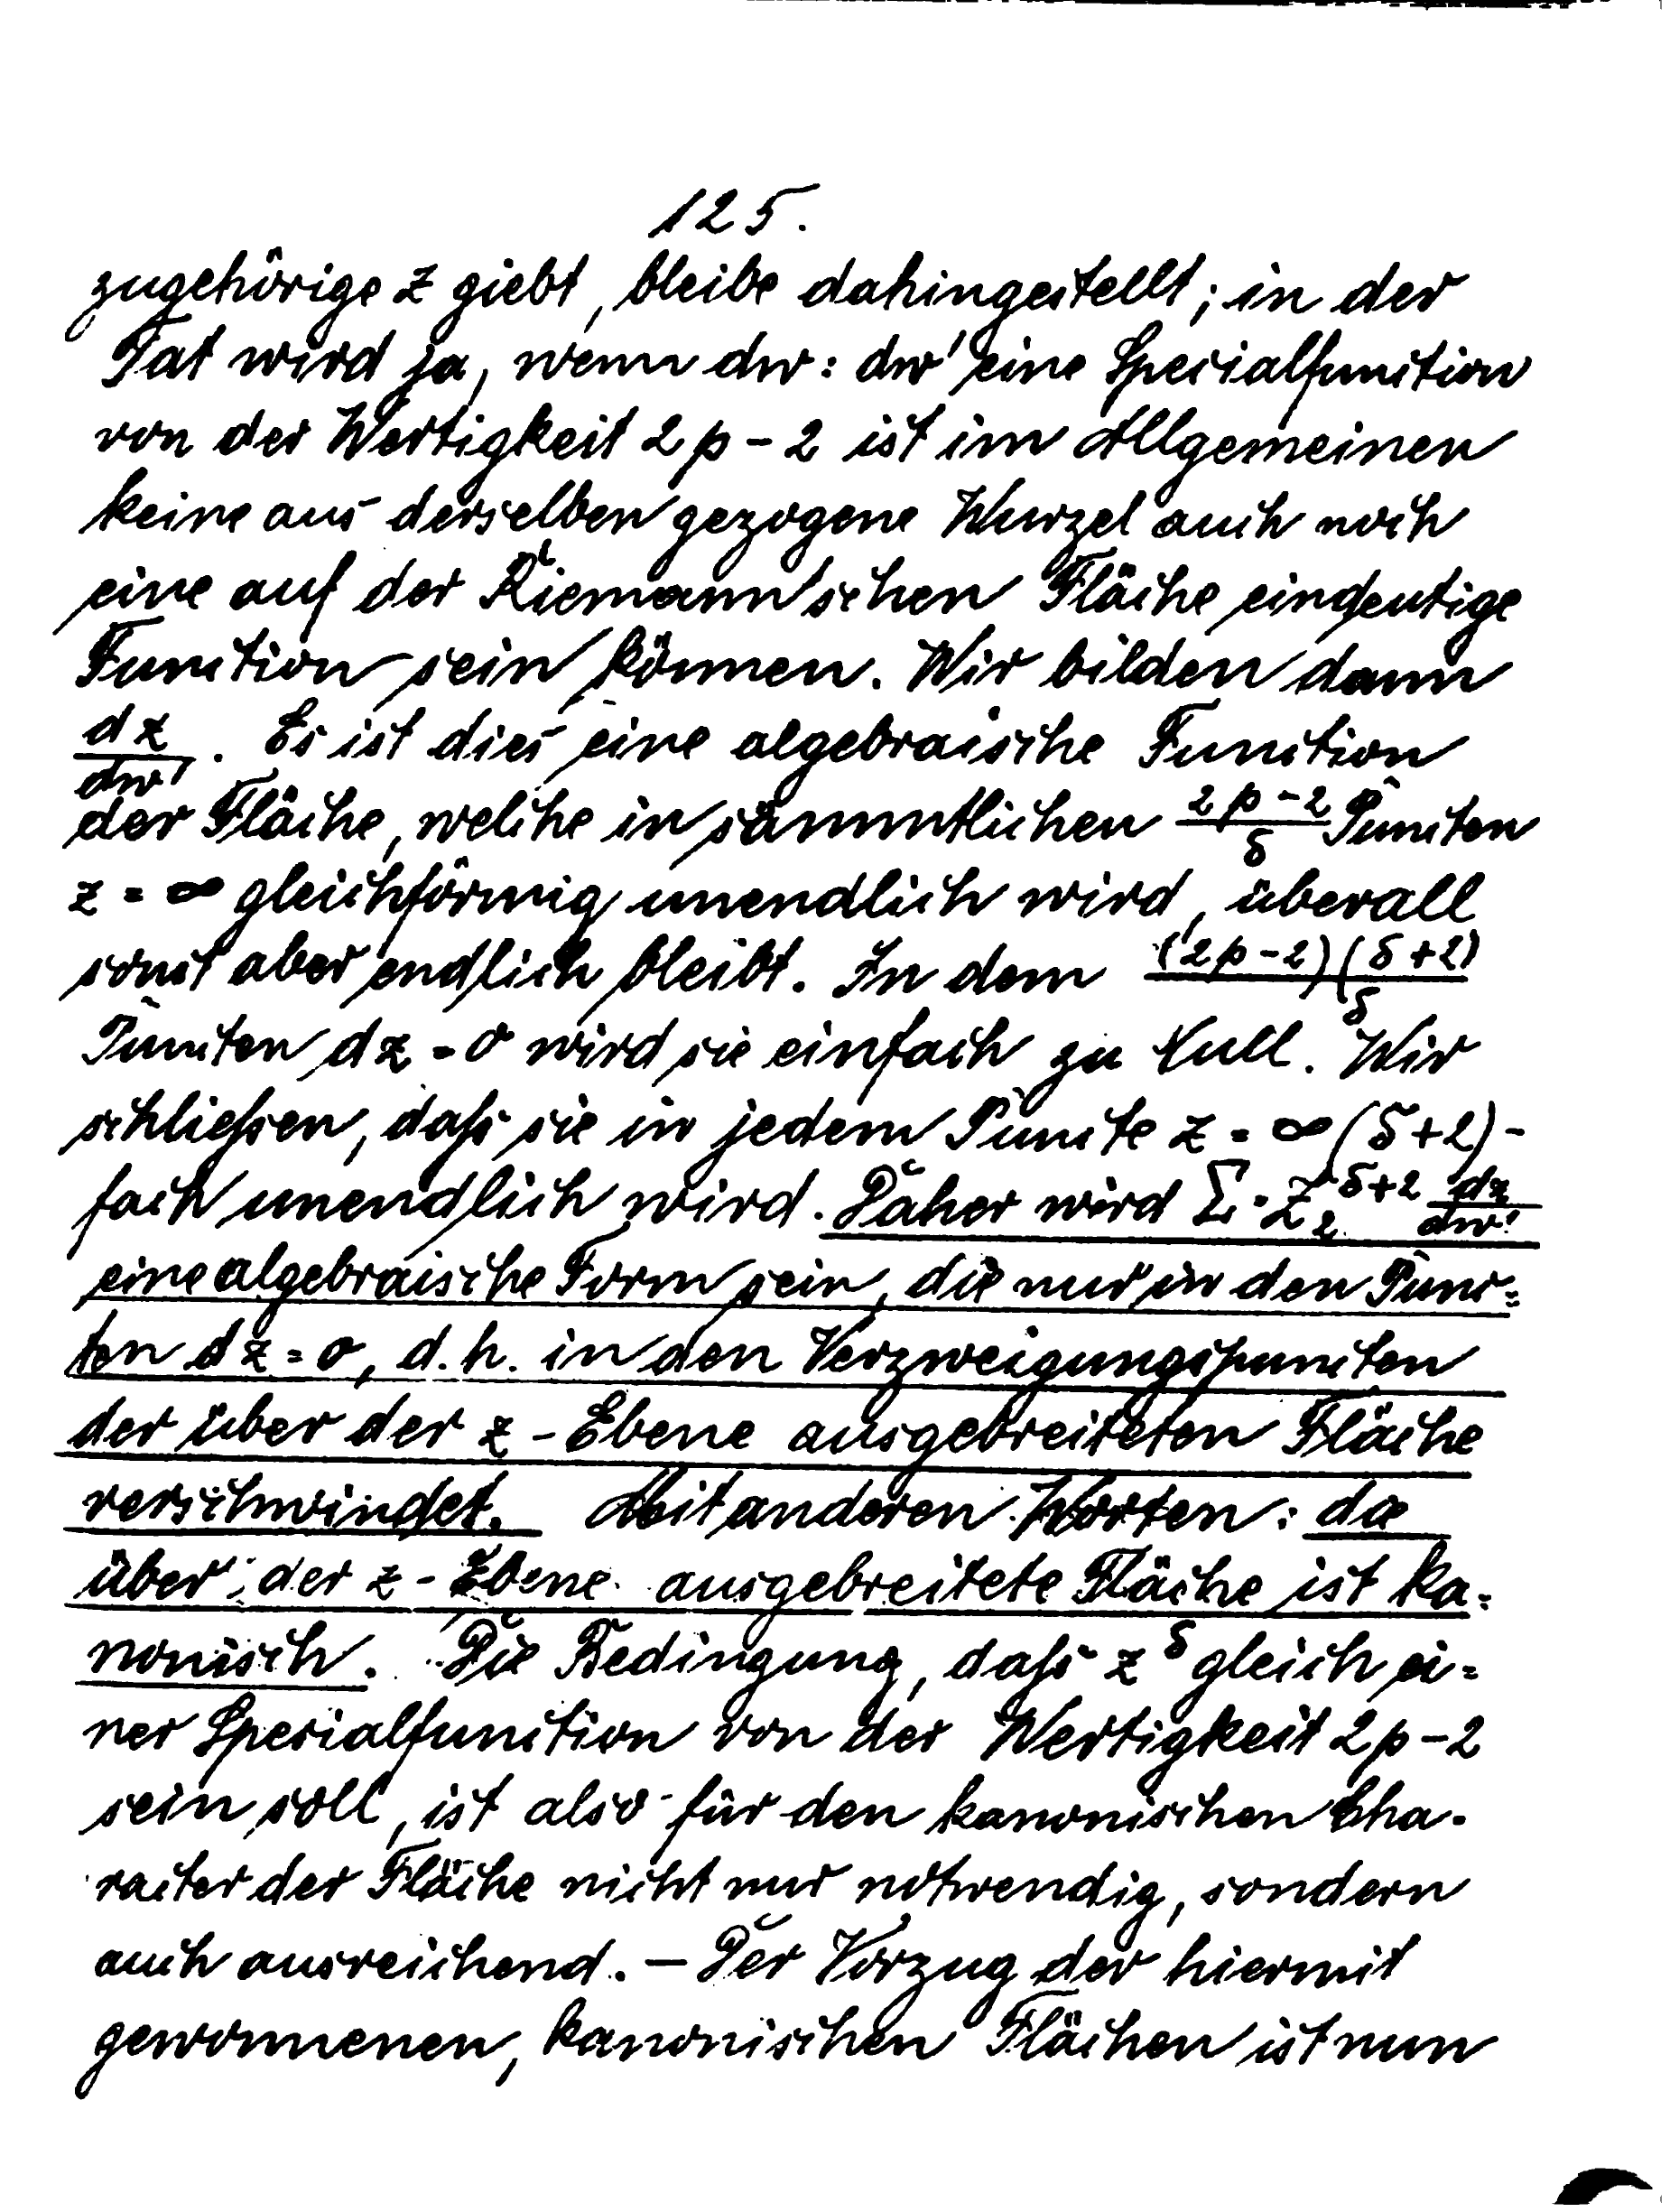 125.
zugehörige z giebt, bleibe dahingestellt; in der
Tat wird ja, wenn dw : dw' eine Specialfunction
von der Wertigkeit 2p-2 ist im Allgemeinen
keine aus derselben gezogene Wurzel auch noch
eine auf der Riemann'schen Fläche eindeutige
Function sein können. Wir bilden dann
dz/dw'. Es ist dies eine algebraische Function
der Fläche, welche in sämmtlichen (2p-2)/δ Puncten
z = ∞ gleichförmig unendlich wird, überall
sonst aber endlich bleibt. In dem (2p-2)(δ+2)/δ
Puncten dz = 0 wird sie einfach zu Null. Wir
schließen, daß sie in jedem Puncte z = ∞ (δ+2)-
fach unendlich wird. Daher wird Σ = z₂^(δ+2) dz/dw'
eine algebraische Form sein, die nur in den Punc=
ten dz = 0, d.h. in den Verzweigungspuncten
der über der z-Ebene ausgebreiteten Fläche
verschwindet. Mit anderen Worten: die
über der z-Ebene ausgebreitete Fläche ist ka=
nonisch. Die Bedingung, daß z^δ gleich ei=
ner Specialfunction von der Wertigkeit 2p-2
sein soll, ist also für den kanonischen Cha-
racter der Fläche nicht nur notwendig, sondern
auch ausreichend. – Der Vorzug der hiermit
gewonnenen, kanonischen Flächen ist nun